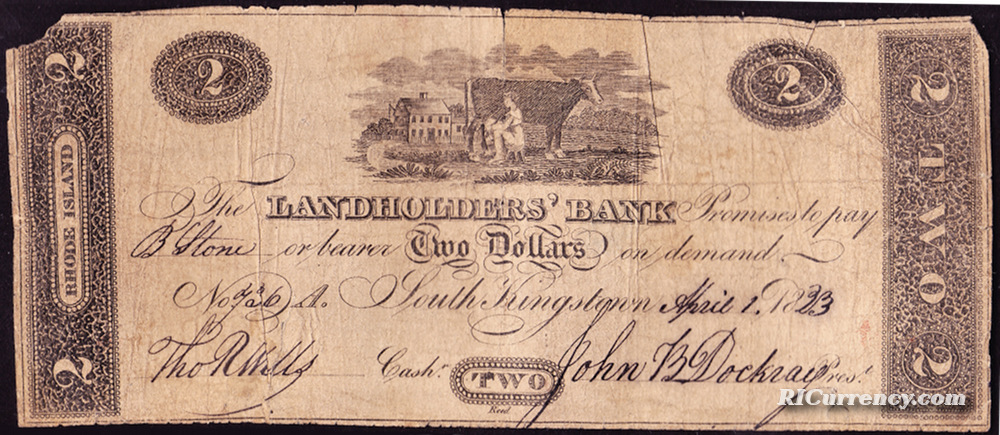 2
2
2
2
RHODE ISLAND
2
2
TWO
2
The LANDHOLDERS' BANK Promises to pay
B Stone or bearer Two Dollars on demand
No A. South Kingstown April 1. 1823
Tho R Wells Cashr. TWO John B Dockray Prest.
Reed
RICurrency.com